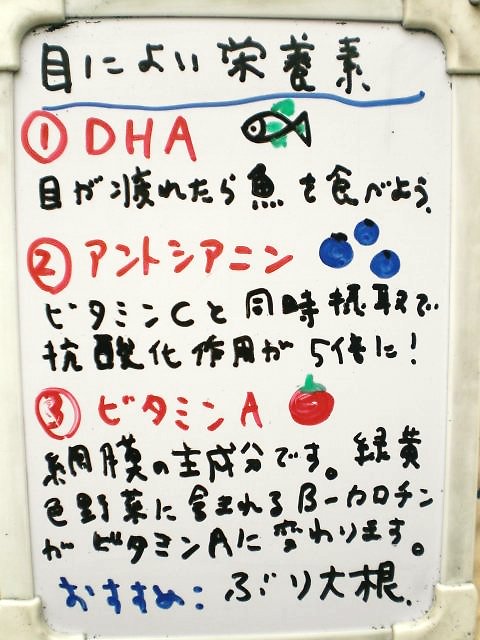 目によい栄養素
① DHA
目が疲れたら魚を食べよう。
② アントシアニン
ビタミンCと同時摂取で
抗酸化作用が5倍に!
③ ビタミンA
網膜の主成分です。緑黄
色野菜に含まれるβ-カロチン
がビタミンAに変わります。
おすすめ:ぶり大根.